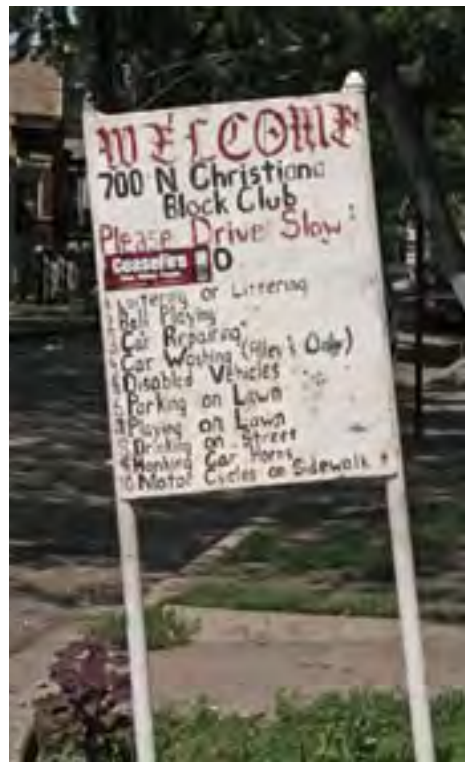 WELCOME
700 N Christiana
Block Club
Please Drive Slow!
CeaseFire
NO
1 Loitering or Littering
2 Ball Playing
3 Car Repairing
4 Car Washing (Alley's Only)
5 Disabled Vehicles
6 Parking on Lawn
7 Playing on Lawn
8 Drinking on Street
9 Honking Car Horns
10 Motor Cycles on Sidewalk